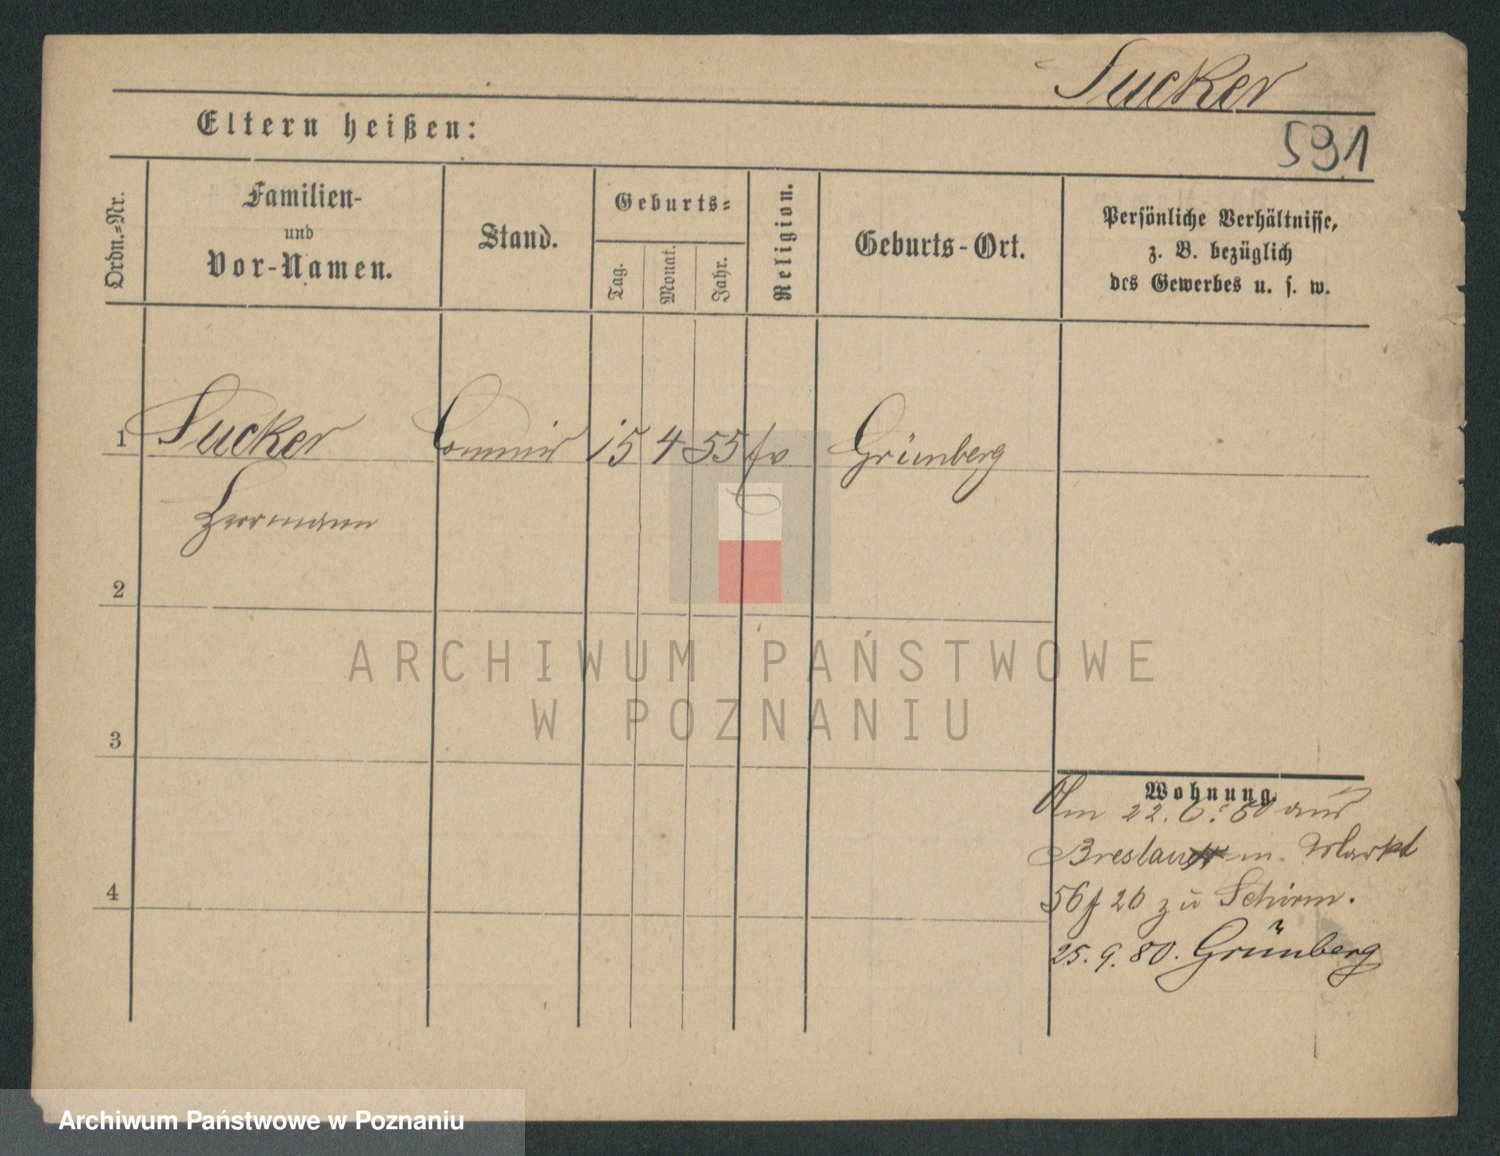 Sucker
Eltern heißen:
591
Ordn.-Nr.
Familien-
und
Vor-Namen.
Stand.
Geburts-
Tag.
Monat.
Jahr.
Religion.
Geburts-Ort.
Persönliche Verhältnisse,
z. B. bezüglich
des Gewerbes u. s. w.
1 Sucker Commis 15 4 55 ev Grünberg
Herrmann
2
3
4
Wohnung.
Am 22. 6. 80 aus
Breslau in Markt
56 f 26 zu Schirm.
25. 9. 80. Grünberg
ARCHIWUM PAŃSTWOWE
W POZNANIU
Archiwum Państwowe w Poznaniu